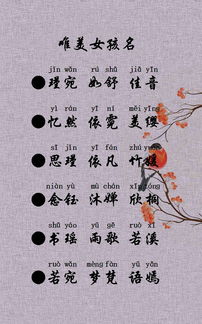 唯美女孩名
jǐn wǎn rú shū jiā yīn
瑾宛 如舒 佳音
yì rán yī ní měi yīng
忆然 依霓 美璎
sī jǐn yī fán zhú yuàn
思瑾 依凡 竹媛
niàn yù mù chán xīn tóng
念钰 沐婵 欣桐
shū yáo yǔ gē ruò xī
书瑶 雨歌 若溪
ruò wǎn mèng fàn yǔ yān
若宛 梦梵 语嫣